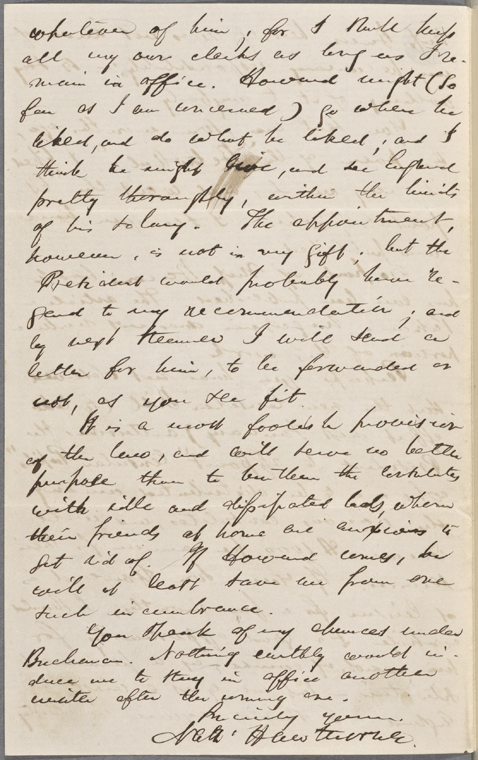 whatever of him; for I shall keep
all my own clerks as long as I re-
main in office. Howard might (so
far as I am concerned) go where he
liked, and do what he liked; and I
think he might live, and see England
pretty thoroughly, within the limits
of his salary. The appointment,
however, is not in my gift; but the
President would probably have re-
gard to my recommendation; and
by next steamer I will send a
letter for him, to be forwarded or
not, as you see fit.
It is a most foolish provision
of the law, and will serve no better
purpose than to burthen the Consulates
with idle and dissipated lads, whom
their friends at home are anxious to
get rid of. If Howard comes, he
will at least save me from one
such incumbrance.
You speak of my chances under
Buchanan. Nothing earthly would in-
duce me to stay in office another
winter after the coming one.
Sincerely yours.
Nath' Hawthorne.